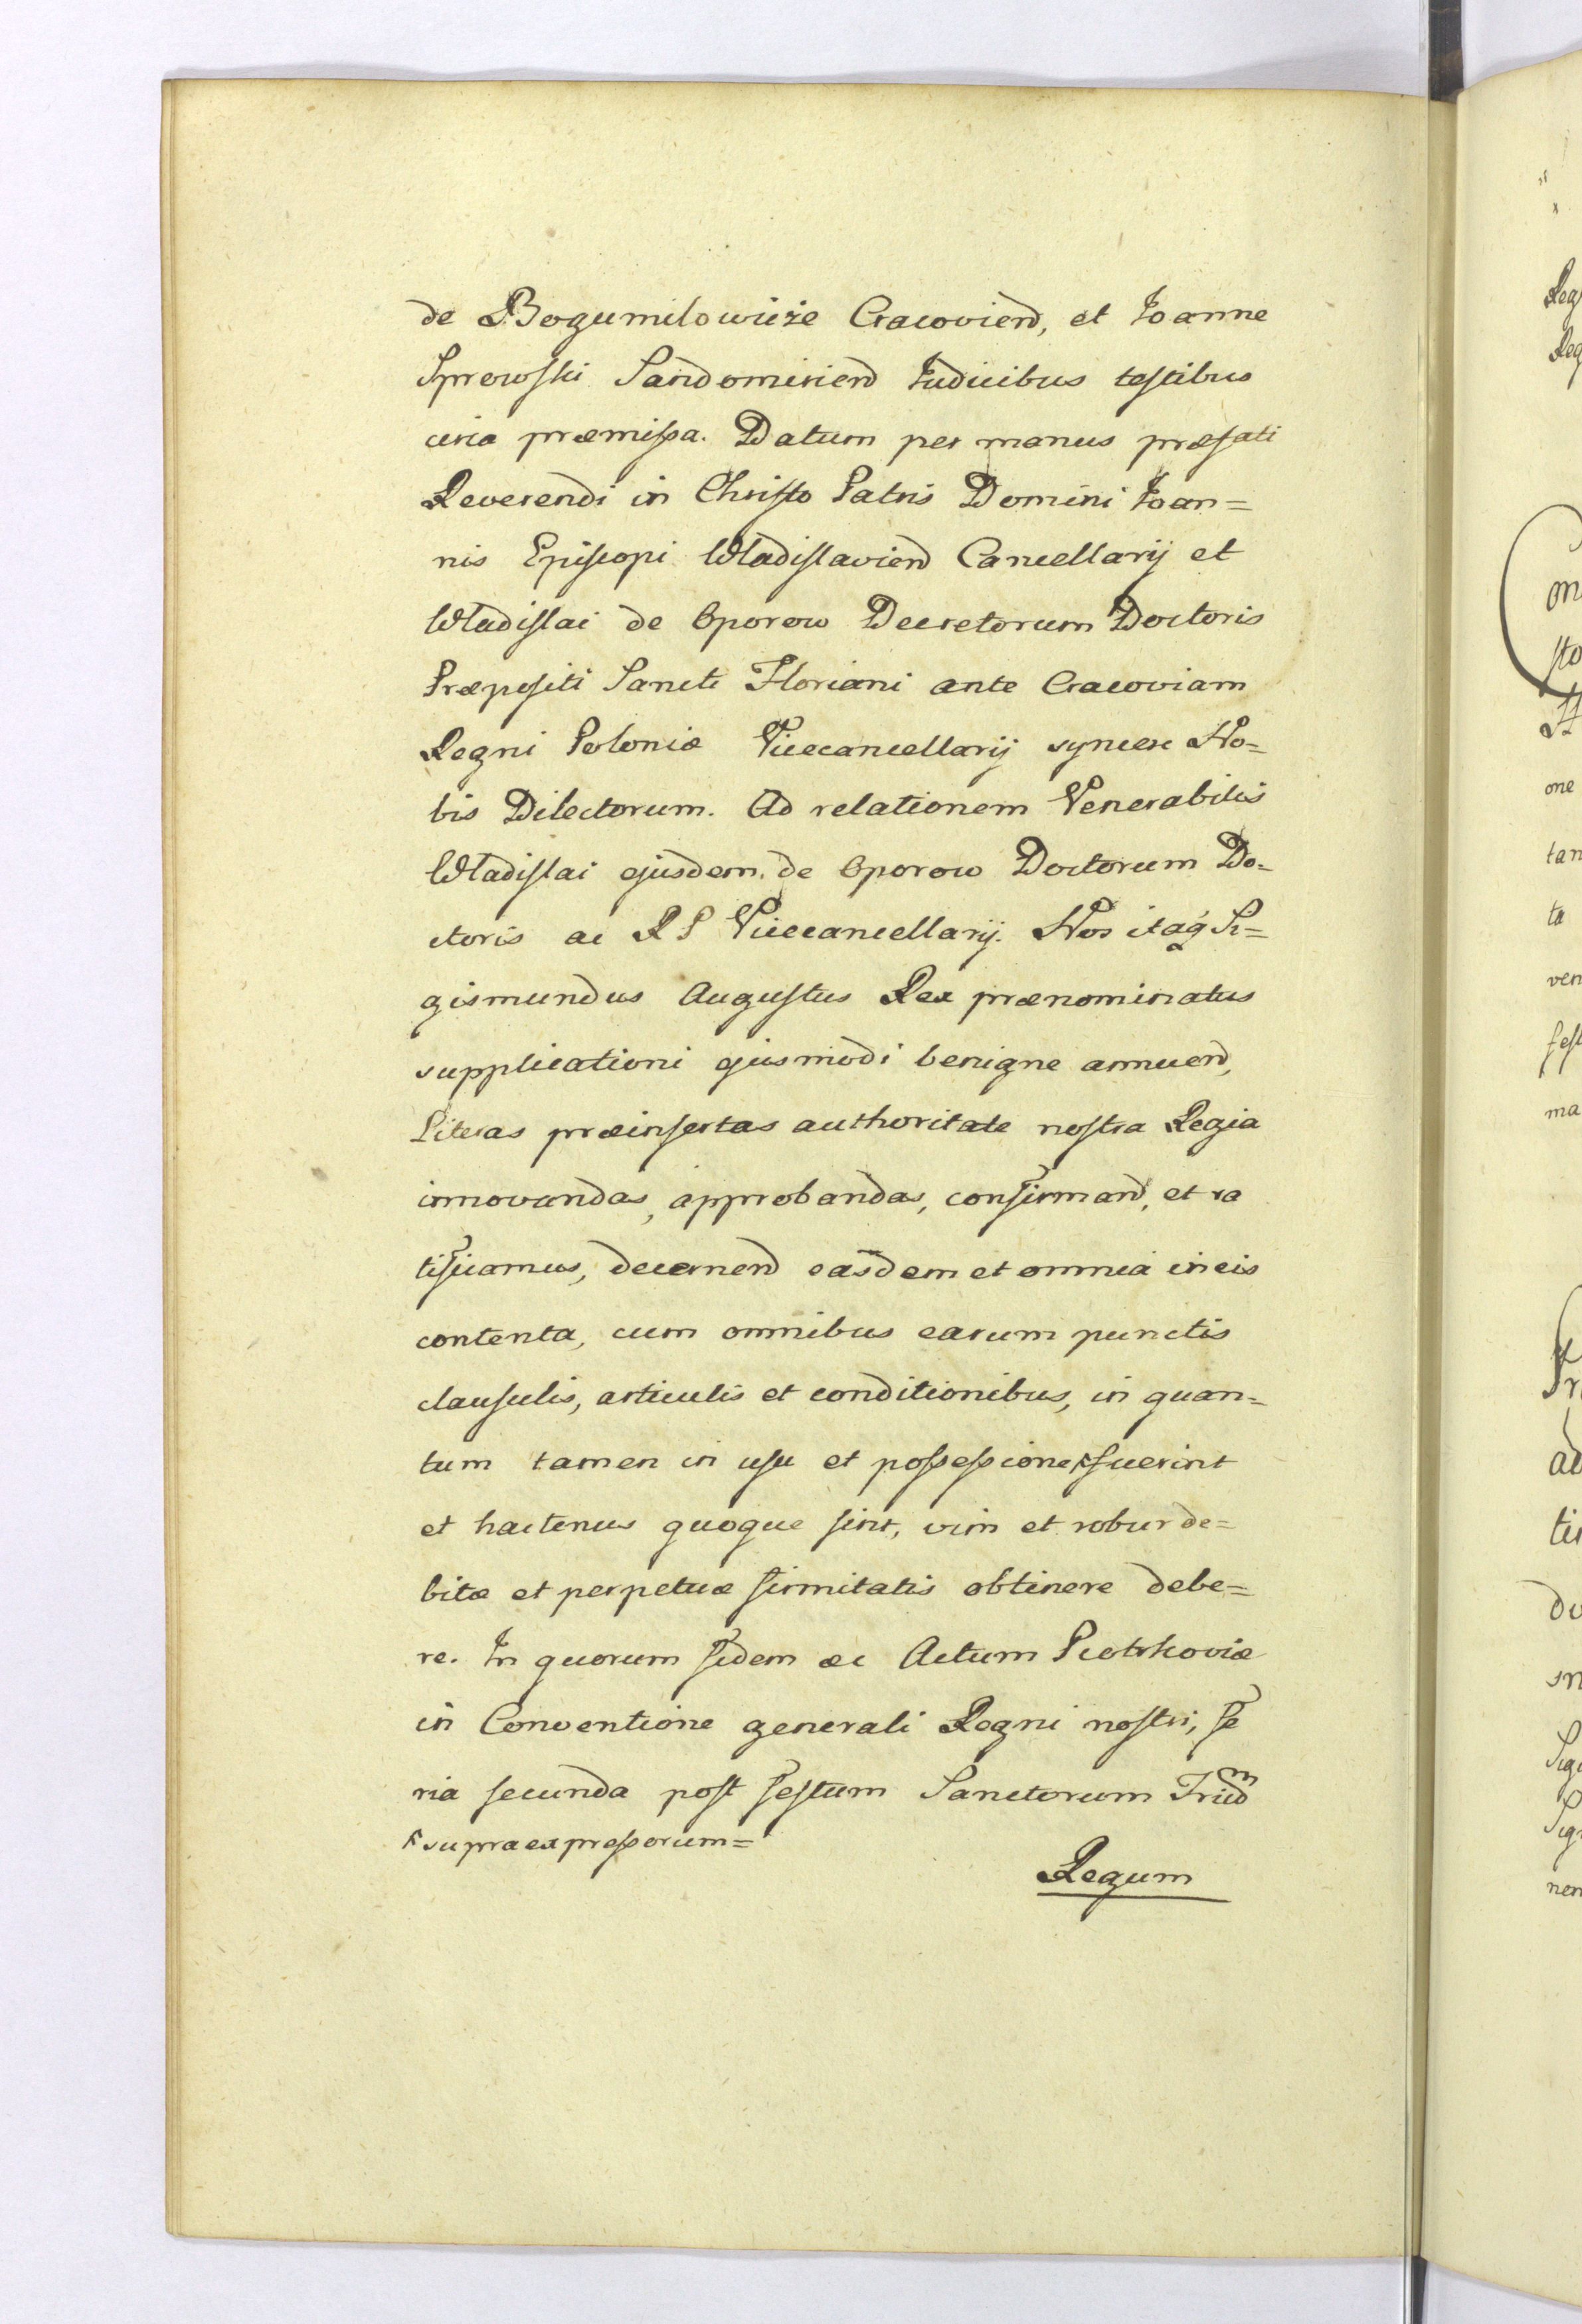 de Bogumilowicze Cracovien, et Joanne
Sprowski Sandomirien Judicibus testibus
circa præmissa. Datum per manus præfati
Reverendi in Christo Patris Domini Joan=
nis Episcopi Wladislavien Cancellarij et
Wladislai de Oporow Decretorum Doctoris
Præpositi Sancti Floriani ante Cracoviam
Regni Poloniæ Vicecancellarij syncere No=
bis Dilectorum. Ad relationem Venerabilis
Wladislai ejusdem de Oporow Doctorum Do=
ctoris ac R P Vicecancellarij. Nos itaq Si=
gismundus Augustus Rex prænominatus
supplicationi ejusmodi benigne annuen,
Literas præinsertas authoritate nostra Regia
innovandas, approbandas, confirmand, et ra
tificamus, decernen easdem et omnia in eis
contenta, cum omnibus earum punctis
clausulis, articulis et conditionibus, in quan=
tum tamen in usu et possessione fuerint
et hactenus quoque sint, vim et robur de=
bitæ et perpetuæ firmitatis obtinere debe=
re. In quorum fidem ac Actum Piotrkoviæ
in Conventione generali Regni nostri, fe
ria secunda post festum Sanctorum Triu
supra expressorum=
Regum